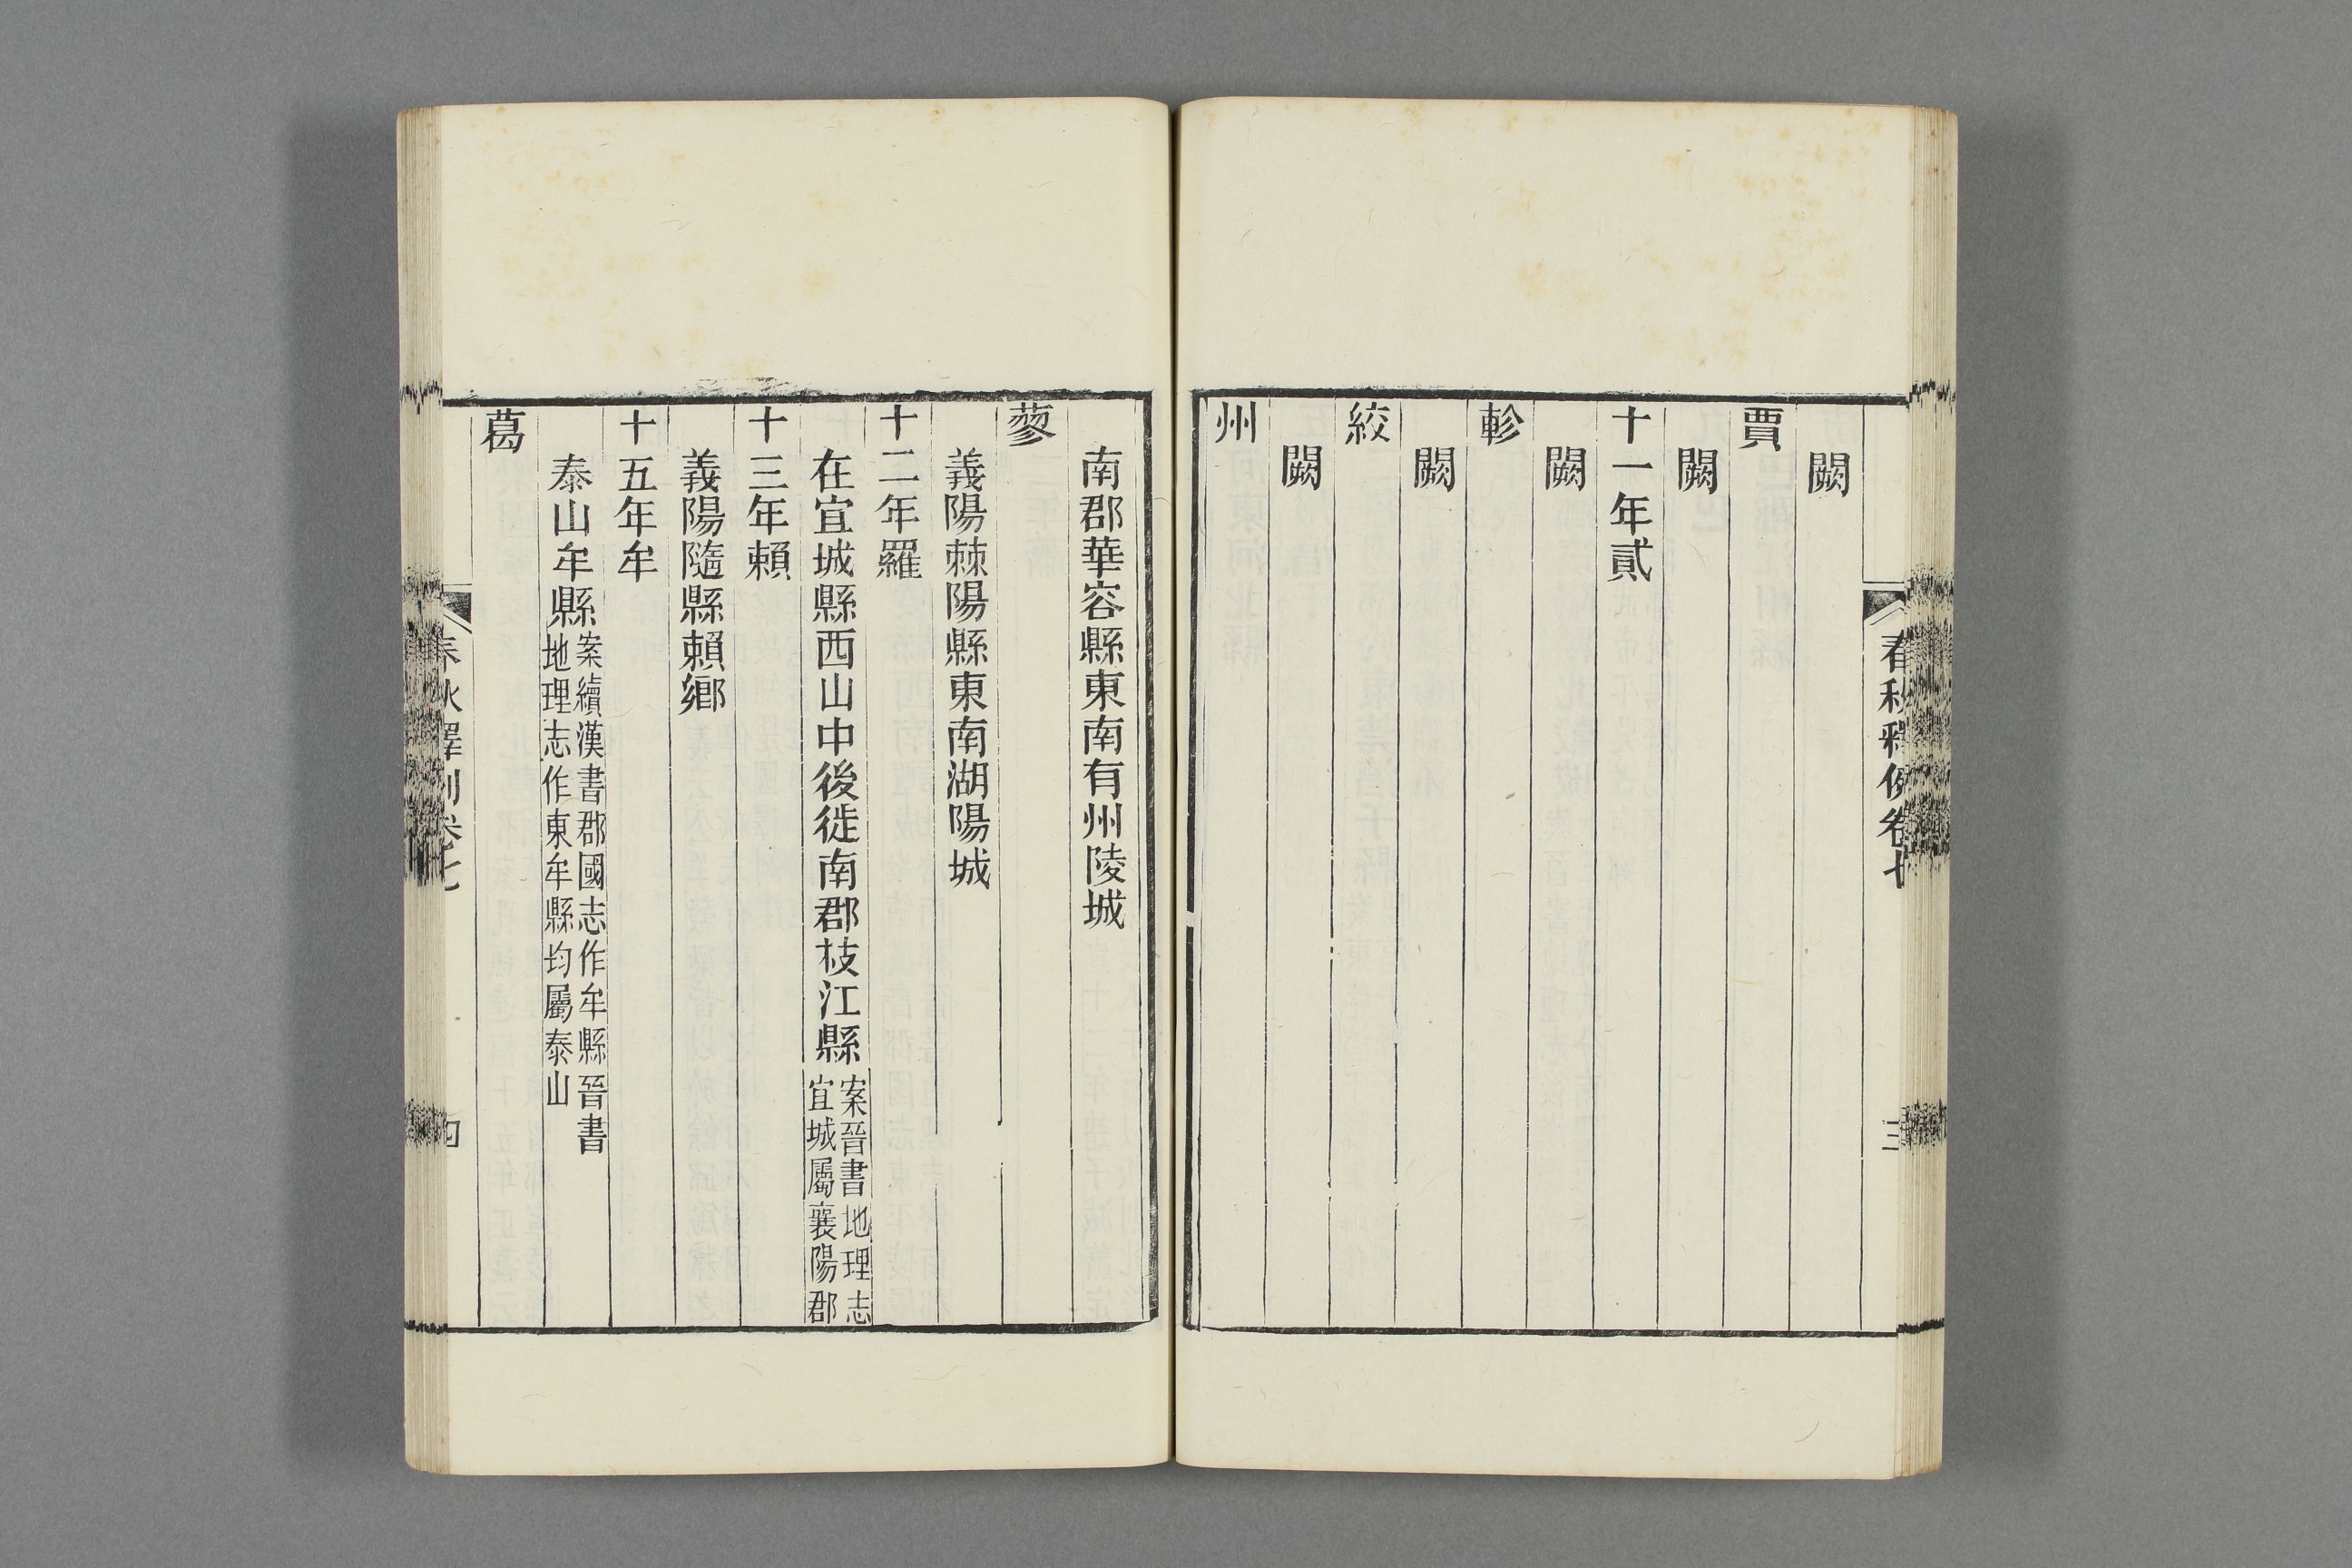 闕
賈
闕
十一年貳
闕
軫
闕
絞
闕
州
南郡華容縣東南有州陵城
蓼
義陽棘陽縣東南湖陽城
十二年羅
在宜城縣西山中後徙南郡枝江縣案晉書地理志
宜城屬襄陽郡
十三年賴
義陽隨縣賴鄉
十五年牟
泰山牟縣案續漢書郡國志作牟縣晉書
地理志作東牟縣均屬泰山
葛
春秋釋例卷七
三
春秋釋例卷七
四